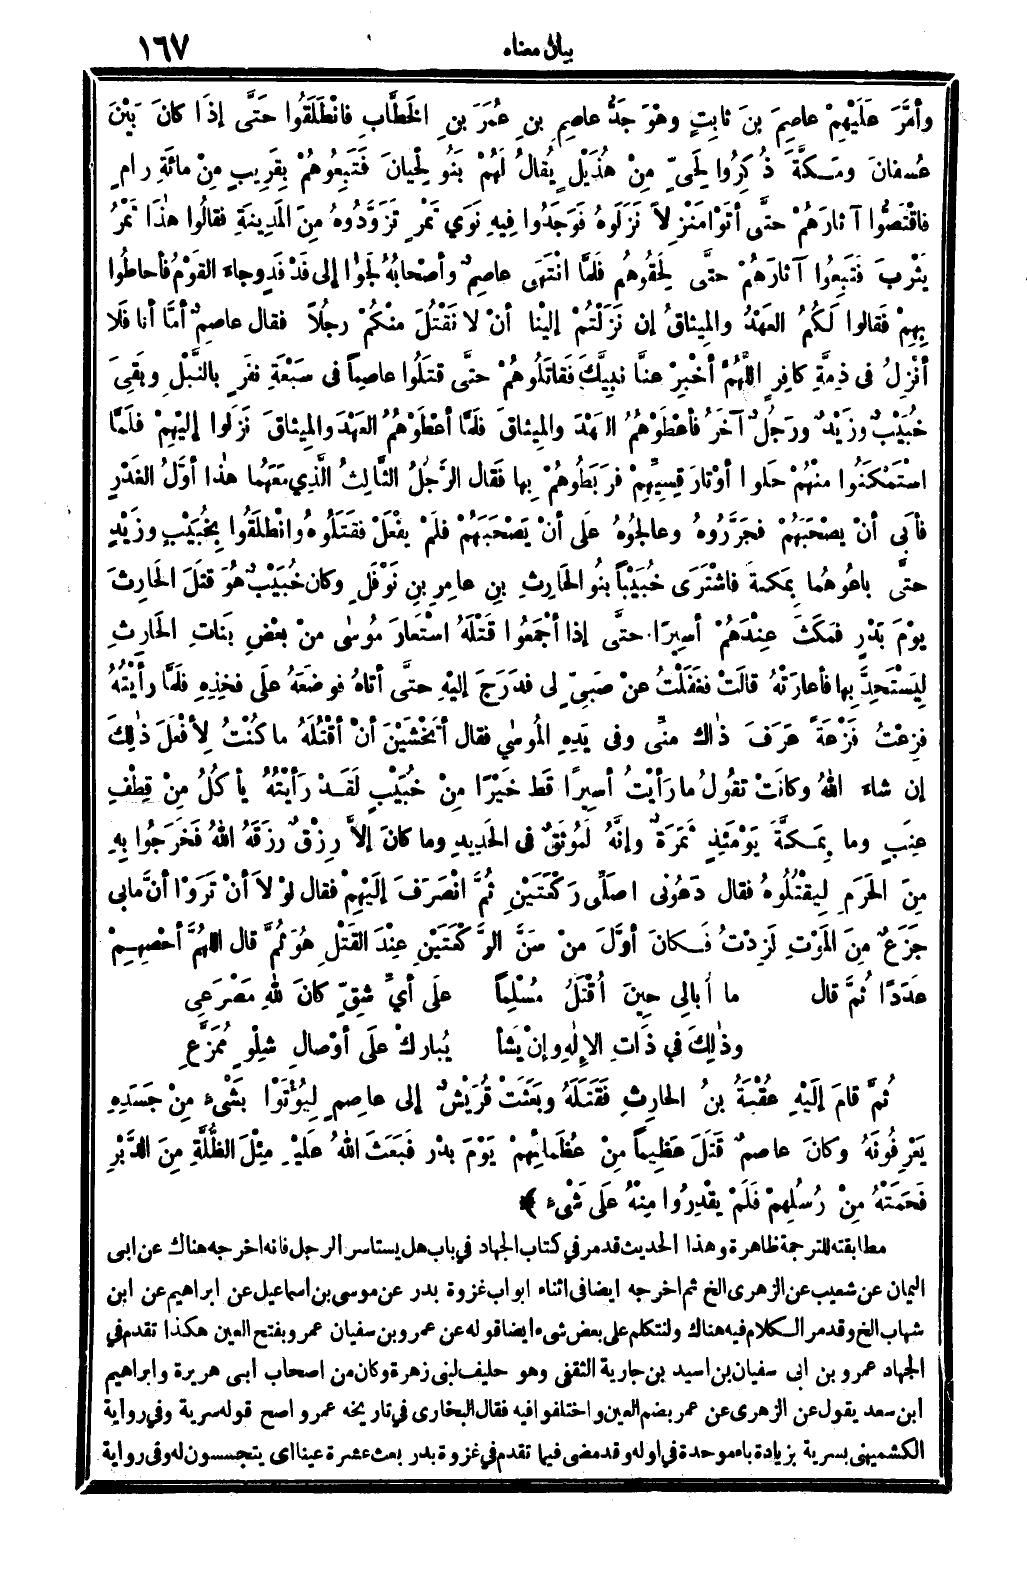 بيان معناه ١٦٧
وأمَّرَ عَلَيْهِمْ عاصِمَ بنَ ثابِتٍ وهْوَ جَدُّ عاصِمِ بنِ عُمَرَ بنِ الخَطَّابِ فانْطَلَقُوا حَتَّى إذَا كانَ بَيْنَ
عُسفانَ ومَكَّةَ ذُكِرُوا لِحَىٍّ مِنْ هُذَيْلٍ يُقالُ لَهُمْ بَنُو لِحْيانَ فَتَبِعُوهُمْ بِقَرِيبٍ مِنْ مائَةِ رامٍ
فاقْتَصُّوا آثارَهُمْ حتَّى أتَوْا مَنْزِلاً نَزَلوهُ فَوَجَدُوا فِيهِ نَوَي تَمْرٍ تَزَوَّدُوهُ مِنَ المَدِينَةِ فقالُوا هٰذَا تَمْرُ
يَثْرِبَ فَتَبِعُوا آثارَهُمْ حتَّى لَحِقُوهُم فَلمَّا انْتَهَى عاصِمٌ وأصْحابُهُ لَجَؤُا إلى فَدْفَدٍ وجاءَ القَوْمُ فأحاطُوا
بِهِمْ فَقالوا لَكُمُ العَهْدُ والمِيثاقُ إن نَزَلْتُمْ إلَيْنا أنْ لا نَقْتُلَ مِنكُمْ رجُلاً فقال عاصِمٌ أمَّا أنا فَلا
أنْزِلُ فى ذِمَّةِ كافِرٍ اللَّهُمَّ أخْبِرْ عنَّا نَبِيَّكَ فَقاتَلُوهُمْ حتَّى قتَلُوا عاصِماً فى سَبْعَةِ نفَرٍ بالنَّبْلِ وبَقِىَ
خُبَيْبٌ وزَيْدٌ ورَجُلٌ آخَرُ فأعْطَوْهُمُ العَهْدَ والمِيثاقَ فلَمَّا أعْطَوْهُمُ العَهْدَ والمِيثاقَ نَزَلوا إلَيْهِمْ فلَمَّا
اسْتَمْكَنُوا منْهُمْ حَلوا أوْتارَ قِسِيِّهِمْ فرَبَطُوهُمْ بِها فَقال الرَّجُلُ الثَّالِثُ الَّذِي مَعَهُما هٰذا أوَّلُ الغَدْرِ
فأبَى أنْ يَصْحَبَهُمْ فجَرَّرُوهُ وعالجُوهُ علَى أنْ يَصْحَبَهُمْ فلَمْ يفْعَلْ فقَتَلُوهُ وانْطلَقُوا بِخُبَيْبٍ وزَيْدٍ
حتَّى باعُوهُما بِمَكةَ فاشْتَرَى خُبَيْباً بنُو الحَارِثِ بنِ عامِرِ بنِ نَوْفَلٍ وكان خُبَيْبٌ هُوَ قتَلَ الحَارِثَ
يوْمَ بَدْرٍ فمَكَثَ عِنْدَهُمْ أسِيرًا حتَّى إذا أجْمَعُوا قَتْلَهُ اسْتَعارَ مُوسٰى منْ بعْضِ بَناتِ الحَارِثِ
لِيَسْتَحِدَّ بِها فأعارَتْهُ قالَتْ فغَفَلْتُ عنْ صَبِىٍّ لى فدَرَجَ إليْهِ حتَّى أتاهُ فوضَعَهُ علَى فخِذِهِ فلَمَّا رأيْتُهُ
فزِعْتُ فَزْعَةً عَرَفَ ذاك منِّى وفى يَدِهِ المُوسٰي فقال أتَخْشَيْنَ أنْ أقْتُلَهُ ما كُنْتُ لِأفْعَلَ ذٰلِكَ
إن شاءَ اللهُ وكانَتْ تقُولُ ما رَأيْتُ أسِيرًا قَط خَيْرًا مِنْ خُبَيْبٍ لَقَدْ رَأيْتُهُ يأكُلُ مِنْ قِطْفِ
عِنَبٍ وما بِمَكَّةَ يَوْمَئِذٍ ثَمَرَةٌ وإنَّهُ لَمُوثَقٌ فى الحَدِيدِ وما كانَ إلاَّ رِزْقٌ رزَقَهُ اللهُ فَخَرَجُوا بِهِ
مِنَ الحَرَمِ لِيقْتُلُوهُ فقال دَعُونى أصَلِّى رَكْعَتَيْنِ ثُمَّ انْصَرَفَ إلَيْهِمْ فقال لوْلاَ أنْ تَرَوْا أنَّ مابى
جَزَعٌ مِنَ المَوْتِ لَزِدْتُ فَكانَ أوَّلَ منْ سَنَّ الرَّكْعَتَيْنِ عِنْدَ القَتْلِ هُوَ ثُمَّ قال اللهُمَّ أحْصِهِمْ
عدَدًا ثُمَّ قال ما أُبالِى حِينَ أُقْتَلُ مُسْلِماً علَى أيِّ شِقٍّ كانَ للهِ مَصْرَعِى
وذٰلِكَ في ذَاتِ الإلٰهِ وإنْ يَشَأْ يُبارِكْ علَى أوْصالِ شِلْوٍ مُمَزَّعِ
ثُمَّ قامَ إلَيْهِ عُقْبَةُ بنُ الحارِثِ فَقَتَلَهُ وبَعَثَتْ قُرَيْشٌ إلى عاصِمٍ لِيُؤْتَوْا بِشَىْءٍ مِنْ جَسَدِهِ
يَعْرِفُونَهُ وكانَ عاصمٌ قَتَلَ عَظِيماً مِنْ عُظَمائِهِمْ يَوْمَ بدْر فَبَعَثَ اللهُ عَلَيْهِ مِثْلَ الظُّلَّةِ مِنَ الدَّبْرِ
فَحَمَتْهُ مِنْ رُسُلِهِمْ فَلَمْ يقْدِرُوا مِنْهُ عَلَى شَىْءٍ ﴾
مطابقته للترجمة ظاهرة وهذا الحديث قد مر في كتاب الجهاد في باب هل يستاسر الرجل فانه اخرجه هناك عن ابى
اليمان عن شعيب عن الزهرى الخ ثم اخرجه ايضا فى اثناء ابواب غزوة بدر عن موسى بن اسماعيل عن ابراهيم عن ابن
شهاب الخ وقد مر الكلام فيه هناك ولنتكلم على بعض شىء ايضا قوله عن عمرو بن سفيان عمرو بفتح العين هكذا تقدم في
الجهاد عمرو بن ابى سفيان بن اسيد بن جارية الثقفى وهو حليف لبنى زهرة وكان من اصحاب ابى هريرة وابراهيم
ابن سعد يقول عن الزهرى عن عمر بضم العين واختلفوا فيه فقال البخارى في تاريخه عمرو اصح قوله سرية وفي رواية
الكشميهنى بسرية بزيادة باء موحدة في اوله وقد مضى فيما تقدم في غزوة بدر بعث عشرة عينا اى يتجسسون له وفى رواية